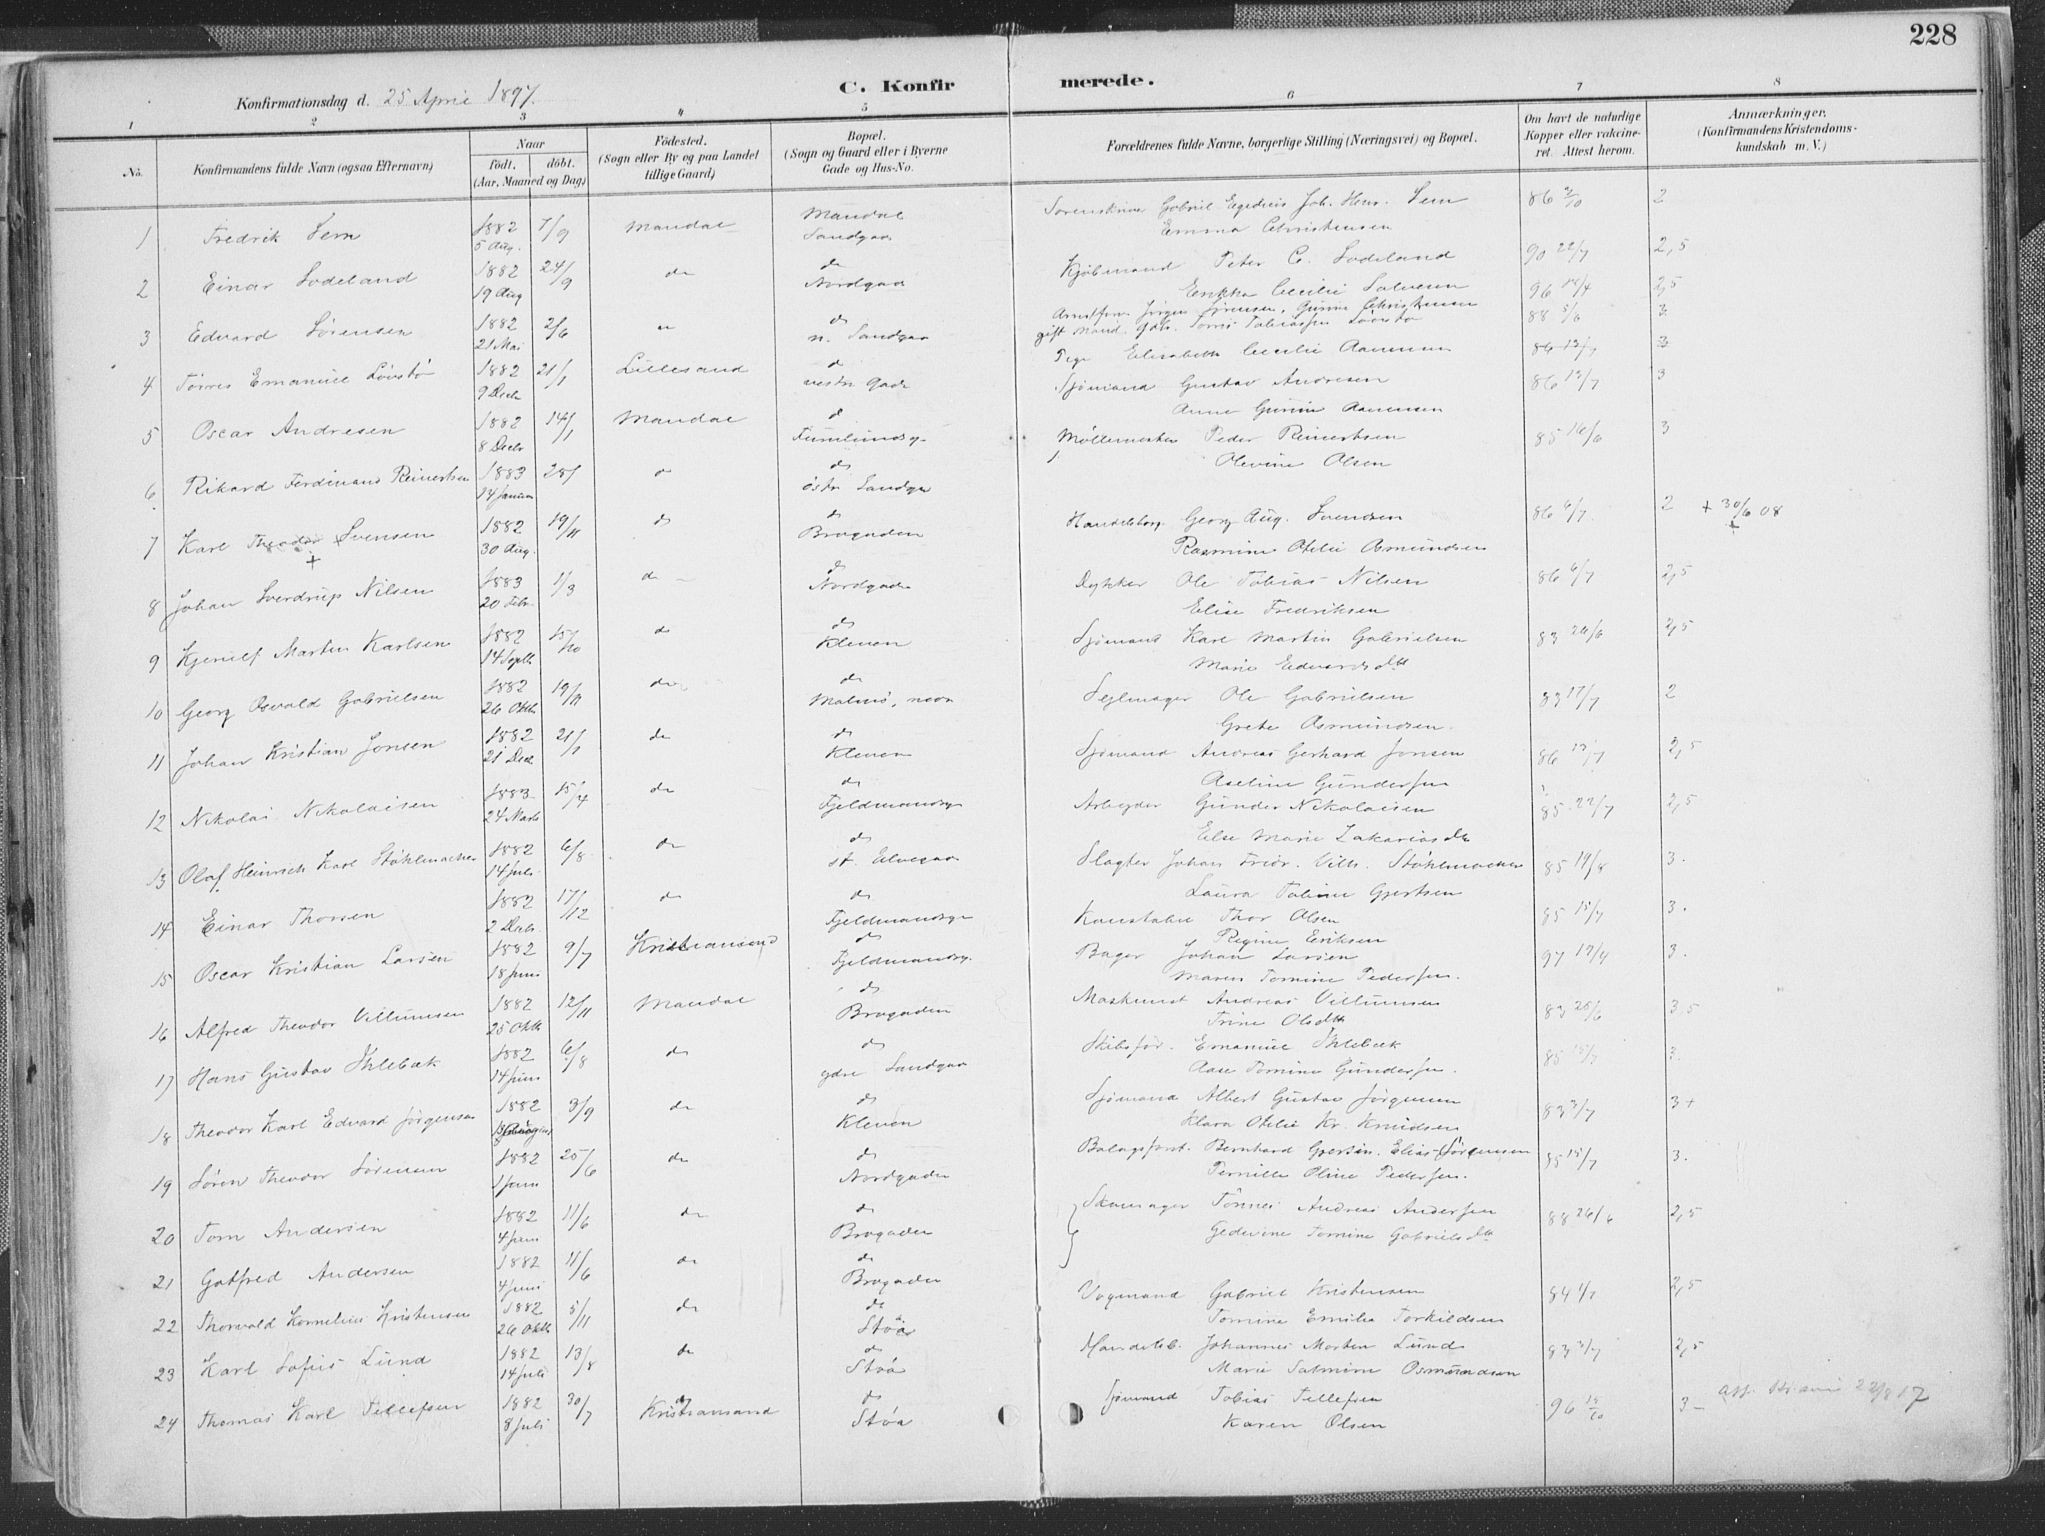 228
C. Konfirmerede.
Konfirmationsdag d. 25 April 1897.
1 2 3 4 5 6 7 8
No. Konfirmandens fulde Navn (ogsaa Efternavn) Naar født. døbt. (Aar, Maaned og Dag) Fødested. (Sogn eller By og paa Landet tillige Gaard) Bopæl. (Sogn og Gaard eller i Byerne Gade og Hus-No. Forældrenes fulde Navne, borgerlige Stilling (Næringsvei) og Bopæl. Om havt de naturlige Kopper eller vakcineret. Attest herom. Anmærkninger. (Konfirmandens Kristendomskundskab m. V.)
1 Fredrik Lem 1882 5 Aug. 7/9 Mandal Mandal Sandgaa Sorenskriver Gabriel Egidius Joh. Henr. Lem 86 2
Emma Christensen
2 Einar Lodeland 1882 19 Aug 24/9 do do Nordgaa Kjøbmand Peter C. Lodeland 90 22/7 2,5
Cecilie Salvesen 96 2,5
3 Edvard Sørensen 1882 21 Mai 2/6 do n. Sandgaa Jørgen Sørensen, Gunine Christensen 88 5/6 3
4 Tørres Emanuel Løvstø 1882 9 Decb 21/1 Lillesand do vestr Gade gift Tørres Tobiassen Løvstø
Pige Elisabeth Cecilie Aanensen 86 13/7 3
5 Oscar Andresen 1882 8 Decbr 14/1 Mandal do Sjømand Gustav Andresen 86 13/7 3
Anne Gurine Aanensen
6 Rikard Ferdinand Reinertsen 1883 14 Januar 28/ do do østr Sandgaa Møllemester Peder Reinertsen 85 16/6 3
Olevine Olsen
7 Karl Theodor Svensen 1882 30 Aug. 19/11 do do Brogaden Handelsborg. Georg Aug. Svendsen 86 6/7 2 + 30/6 08
+ Rasmine Otelie Asmundsen +
8 Johan Sverdrup Nilsen 1883 20 Febr. 1/3 do do Nordgade Dykker Ole Tobias Nilsen 86 6/7 2,5
Elise Fredriksen
9 Martin Karlsen 1882 14 Septb 15/10 do do Kleven Sjømand Karl Martin Gabrielsen 83 26/6 2,5
Marie Edvardsdtt
10 Georg Osvald Gabrielsen 1882 26 Oktb 19/11 do do Malmø, nove Sejlmager Ole Gabrielsen 83 17/7 2
Grete Asmundsen.
11 Johan Kristian Jonsen 1882 21 Decb 21/1 do do Kleven Sjømand Andreas Gerhard Jonsen 86 13/7 2,5
Aseline Gundersen
12 Nikolai Nikolaisen 1883 24 Marts 15/4 do do Fjeldmandsg. Arbejder Gunder Nikolaisen 85 22/7 2,5
Else Marie Zakariasdtr
13 Olaf Heinrich Karl Støhlmacher 1882 14 Juli 6/8 do do st. Elvegaa Slagter Johan Fridr. Vilh. Støhlmacher 85 19/8 3.
Laura Tobine Gjertsen
14 Einar Thorsen 1882 2 Decbr. 17/12 do do Fjeldmandsg. Konstabel Thor Olsen 85 15/7 3.
Regine Eriksen
15 Oscar Kristian Larsen 1882 18 Juni 9/7 Kristiansand do Fjeldmandsg. Bager Johan Larsen 97 3.
Maren Tomine Pedersen.
16 Alfred Theodor Villumsen 1882 25 Oktb 12/11 Mandal do Brogaden Maskinist Andreas Villumsen 83 26/6 3,5
Trine Olsdtt
17 Hans Gustav Uhlebæk 1882 14 Juni 6/8 do do ydre Sandgaa Skibsfør. Emanuel Uhlebæk 85 15/7 3.
Aase Tomine Gundersen.
18 Theodor Karl Edvard Jørgensen 1882 3/9 do do Kleven Sjømand Albert Gustav Jørgensen 83 3/7 3+
Klara Otelie Kr. Knudsen
19 Søren Theodor Sørensen 1882 1 Juni 25/6 do do Nordgaden Bernhard Elias Sørensen 85 15/7 3.
Pernille Oline Pedersen.
20 Tom Andersen 1882 4 Juni 11/6 do do Brogaden Skomager Tønnes Andreas Andersen 88 26/6 2,5
Tomine Gabrielsdtt
21 Gotfred Andersen 1882 4 Juni 11/6 do do Brogaden
22 Thorvald Kornelius Kristensen 1882 26 Oktb 5/11 do do Støa Vogmand Gabriel Kristensen 84 1/7 2,5
Tomine Emilie Torkildsen
23 Karl Sofus Lund 1882 14 Juli 13/8 do do Støa Handelsb. Johannes Morten Lund 83 3/7 2,5
Marie Salmine Osmundsen
24 Thomas Karl Tellefsen 1882 8 Juli 30/7 Kristiansand do Støa Sjømand Tobias Tellefsen 96 15/10 3 –
Karen Olsen